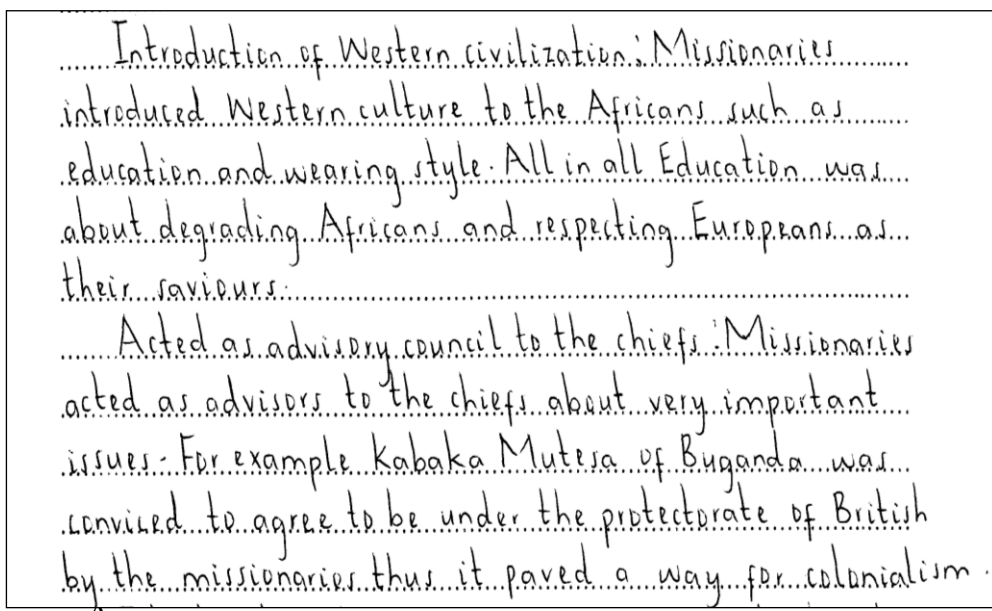 Introduction of Western civilization; Missionaries
introduced Western culture to the Africans such as
education and wearing style. All in all Education was
about degrading Africans and respecting Europeans as
their saviours.
Acted as advisory council to the chiefs: Missionaries
acted as advisors to the chiefs about very important
issues. For example Kabaka Mutesa of Buganda was
conviced to agree to be under the protectorate of British
by the missionaries thus it paved a way for colonialism.